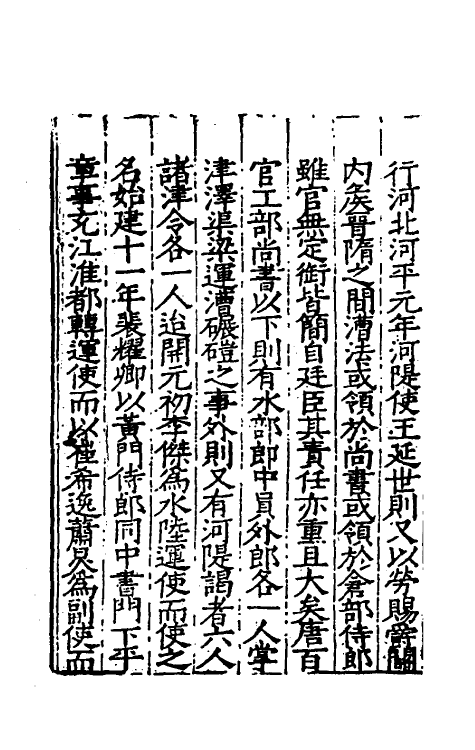 行河北河平元年河隄使王延世則又以勞賜爵關
内矦晉隋之間漕法或領於尚書或領於倉部侍郎
雖官無定銜皆簡自廷臣其責任亦重且大矣唐百
官工部尚書以下則有水部郎中員外郎各一人掌
津澤渠梁運漕碾磑之事外則又有河隄謁者六人
諸津令各一人迨開元初李傑為水陸運使而使之
名始建十一年裴耀卿以黃門侍郎同中書門下平
章事充江淮都轉運使而以崔希逸蕭炅為副使而